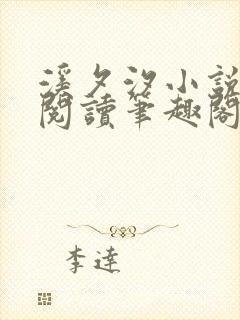 溪夕汐小說
閱讀筆趣閣
李達